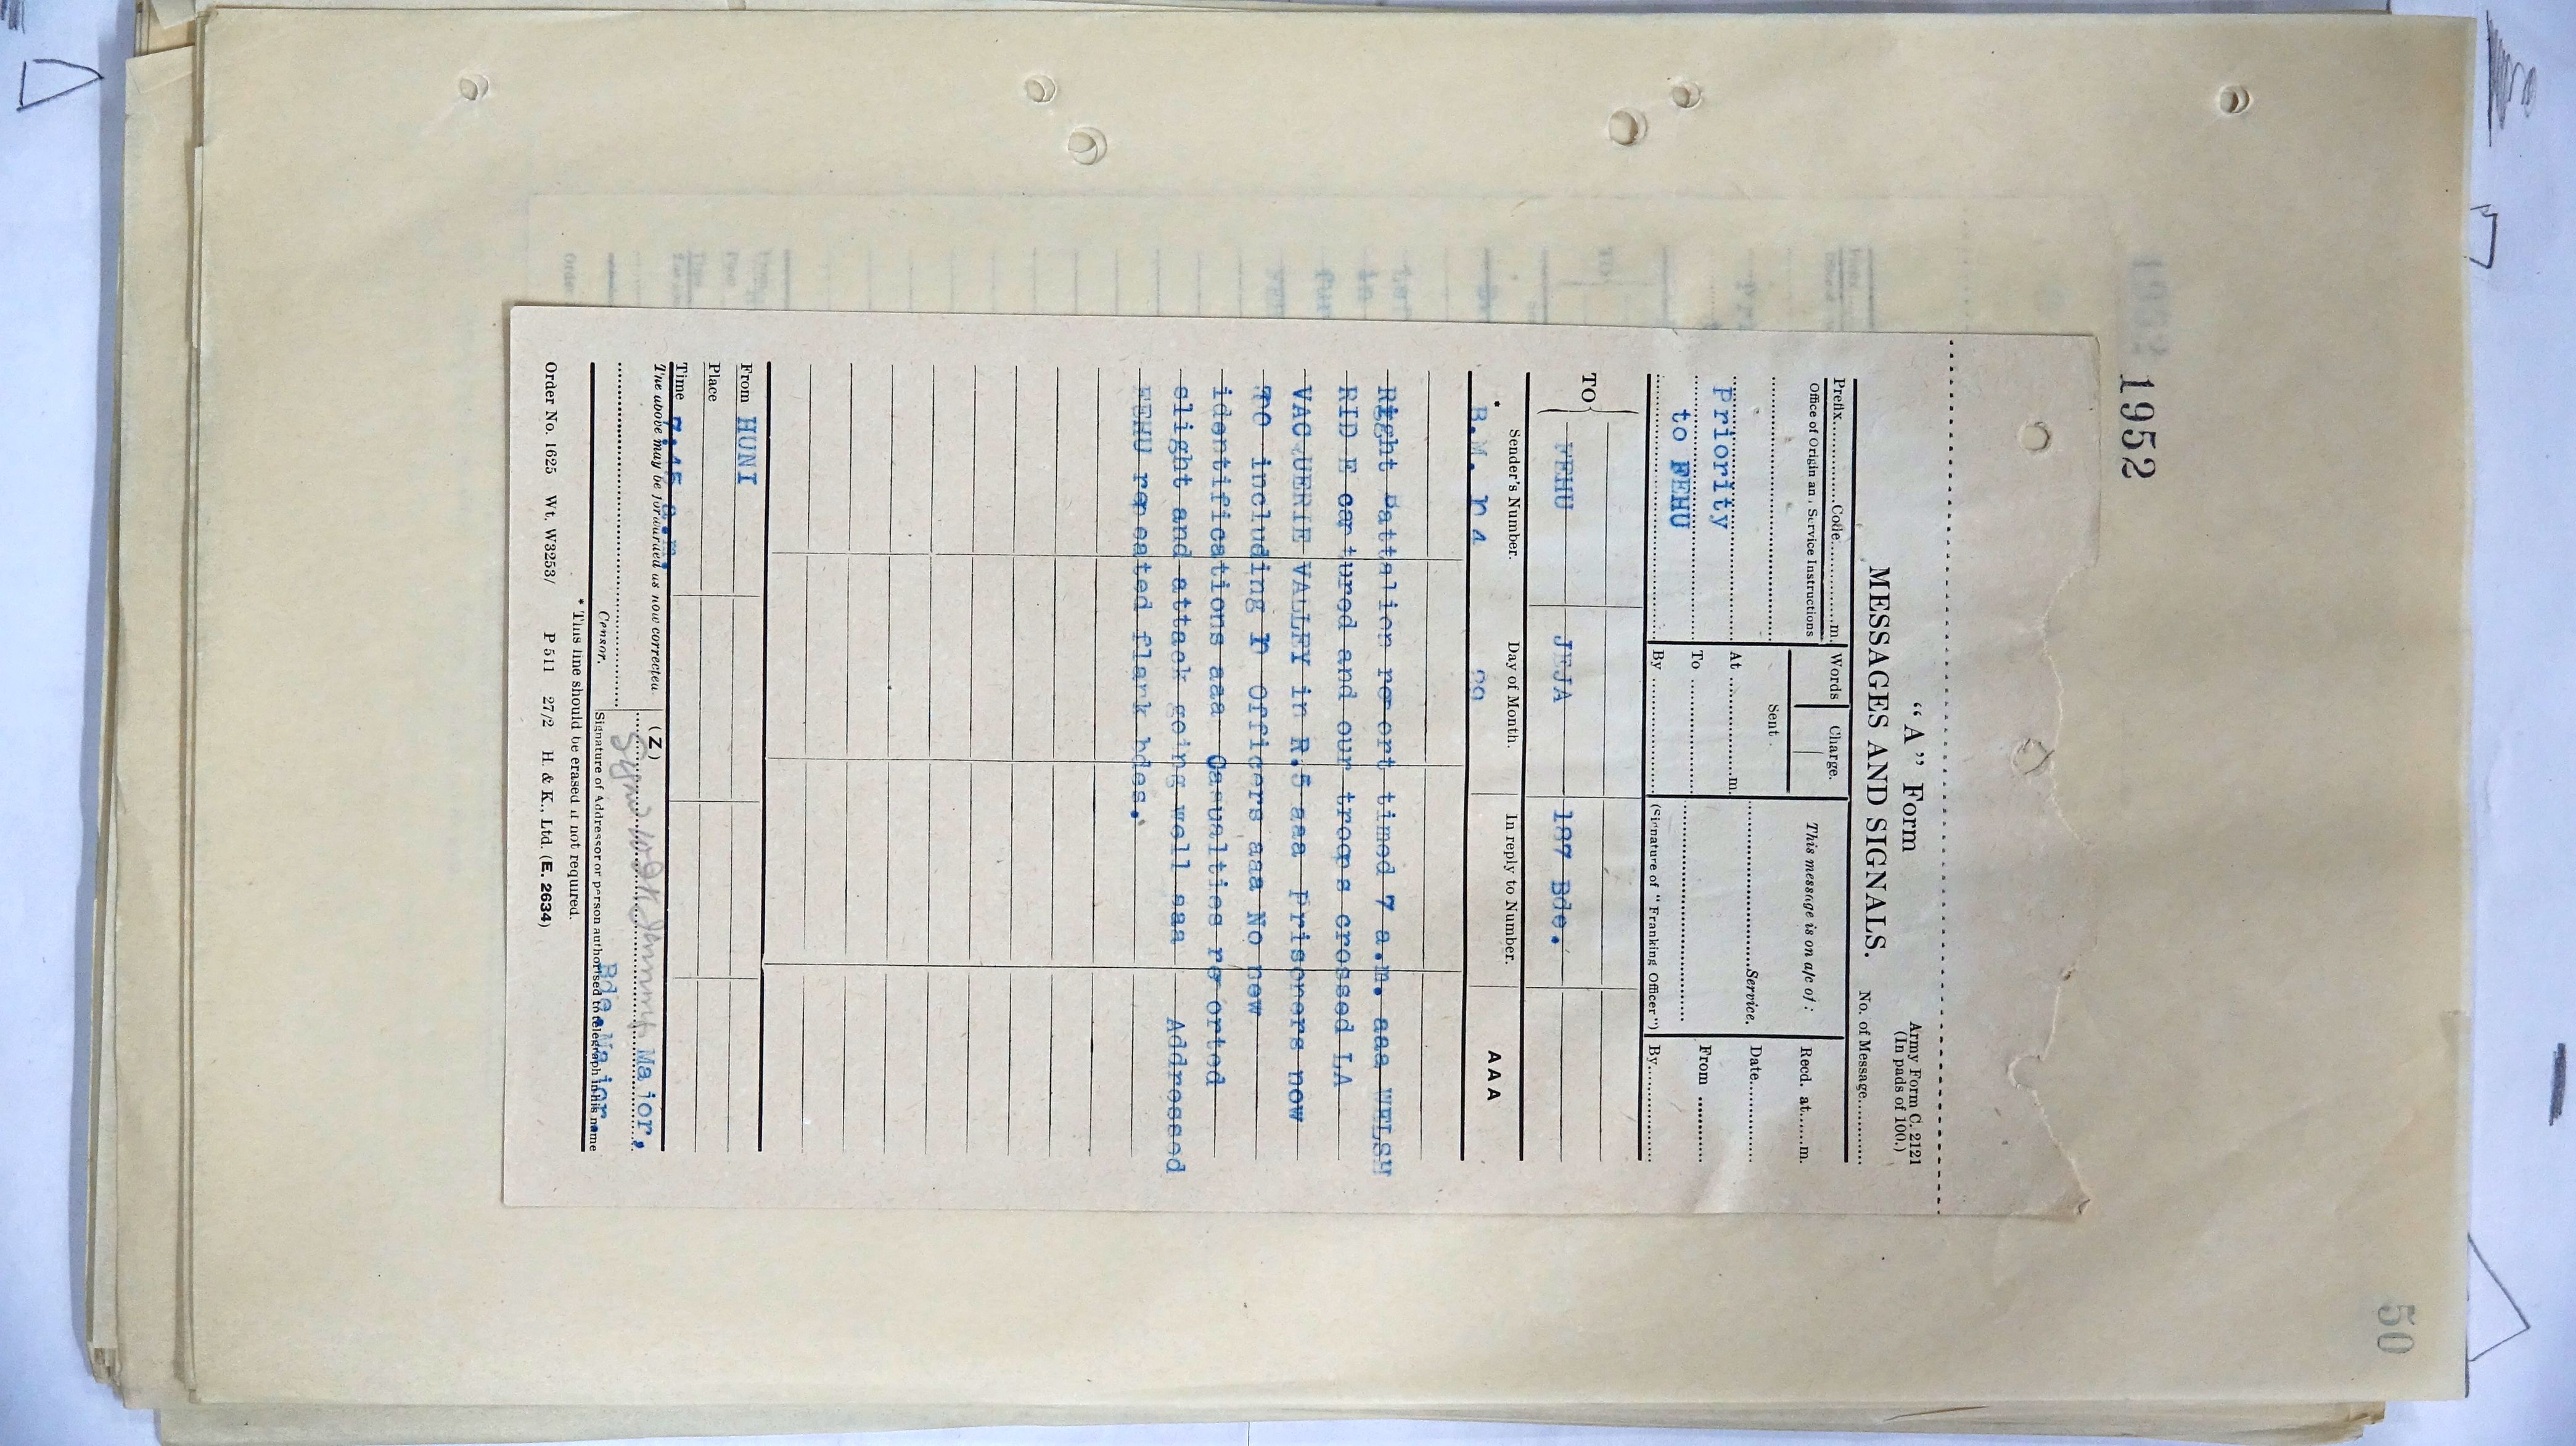 1952
"A" Form
MESSAGES AND SIGNALS.
Army Form C. 2121
(In pads of 100.)
No. of Message............
Prefix............Code............m.
Words
Charge.
This message is on a/c of :
Recd. at......m.
Office of Origin an Service Instructions
Sent
Priority
At ............m.
............Service.
Date............
to FEHU
To ............
From ............
By ............
(Signature of "Franking Officer")
By............
TO
FEHU
JEJA
187 Bde.
Sender's Number.
Day of Month.
In reply to Number.
AAA
* B.M.
29
Right Battalion report timed 7 a.m. aaa WELSH
RID E captured and our troops crossed LA
VAC UERIE VALLEY in R.5 aaa Prisoners now
including Officers aaa No new
identifications aaa Casualties reported
slight and attack going well aaa Addressed
FEHU repeated flank bdes.
From HUNI
Place
Time 7.45 a.m.
The above may be forwarded as now corrected.
(Z)
Major,
Bde.Major.
Censor.
Signature of Addressor or person authorised to telegraph in his name
* This line should be erased if not required.
Order No. 1625 Wt. W3253/ P 511 27/2 H. & K., Ltd. (E. 2634)
50